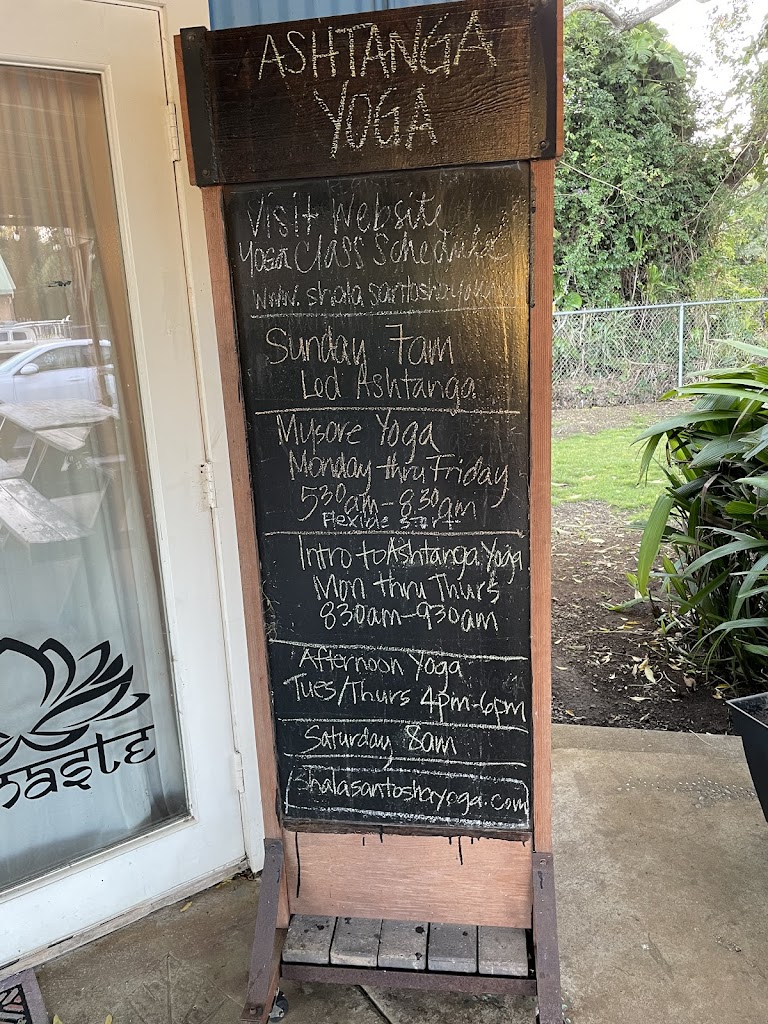 ASHTANGA
YOGA
Visit Website
Yoga Class Schedule
www.shalasantoshayoga
Sunday 7am
Led Ashtanga
Mysore Yoga
Monday thru Friday
5:30am-8:30am
Flexible start
Intro to Ashtanga Yoga
Mon thru Thurs
830am-930am
Afternoon Yoga
Tues/Thurs 4pm-6pm
Saturday 8am
shalasantoshayoga.com
maste